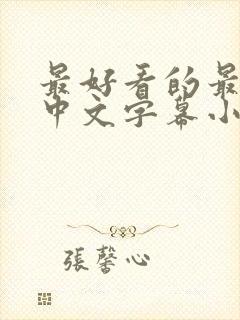 最好看的最
中文字幕小
張馨心